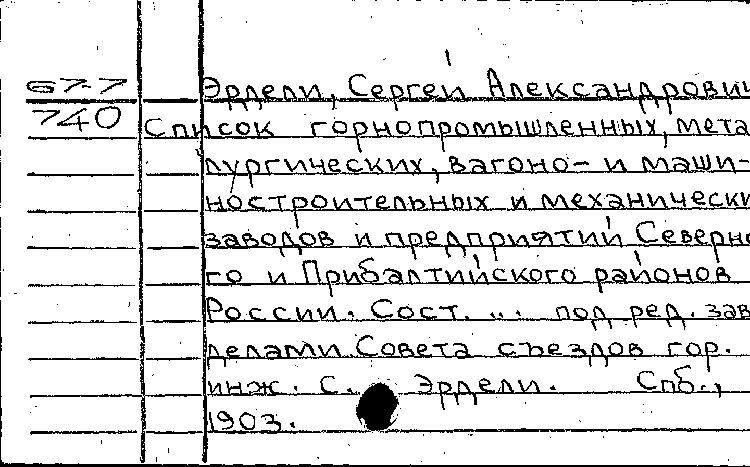 67-7 Эрдели, Сергей Александрович
740 Список горнопромышленных, мета
лургических, вагоно- и маши-
ностроительных и механически
заводов и предприятий Северно
го и Прибалтийского районов
России. Сост. ... под ред. зав
делами Совета съездов гор.
инж. С. Эрдели. Спб.,
1903.